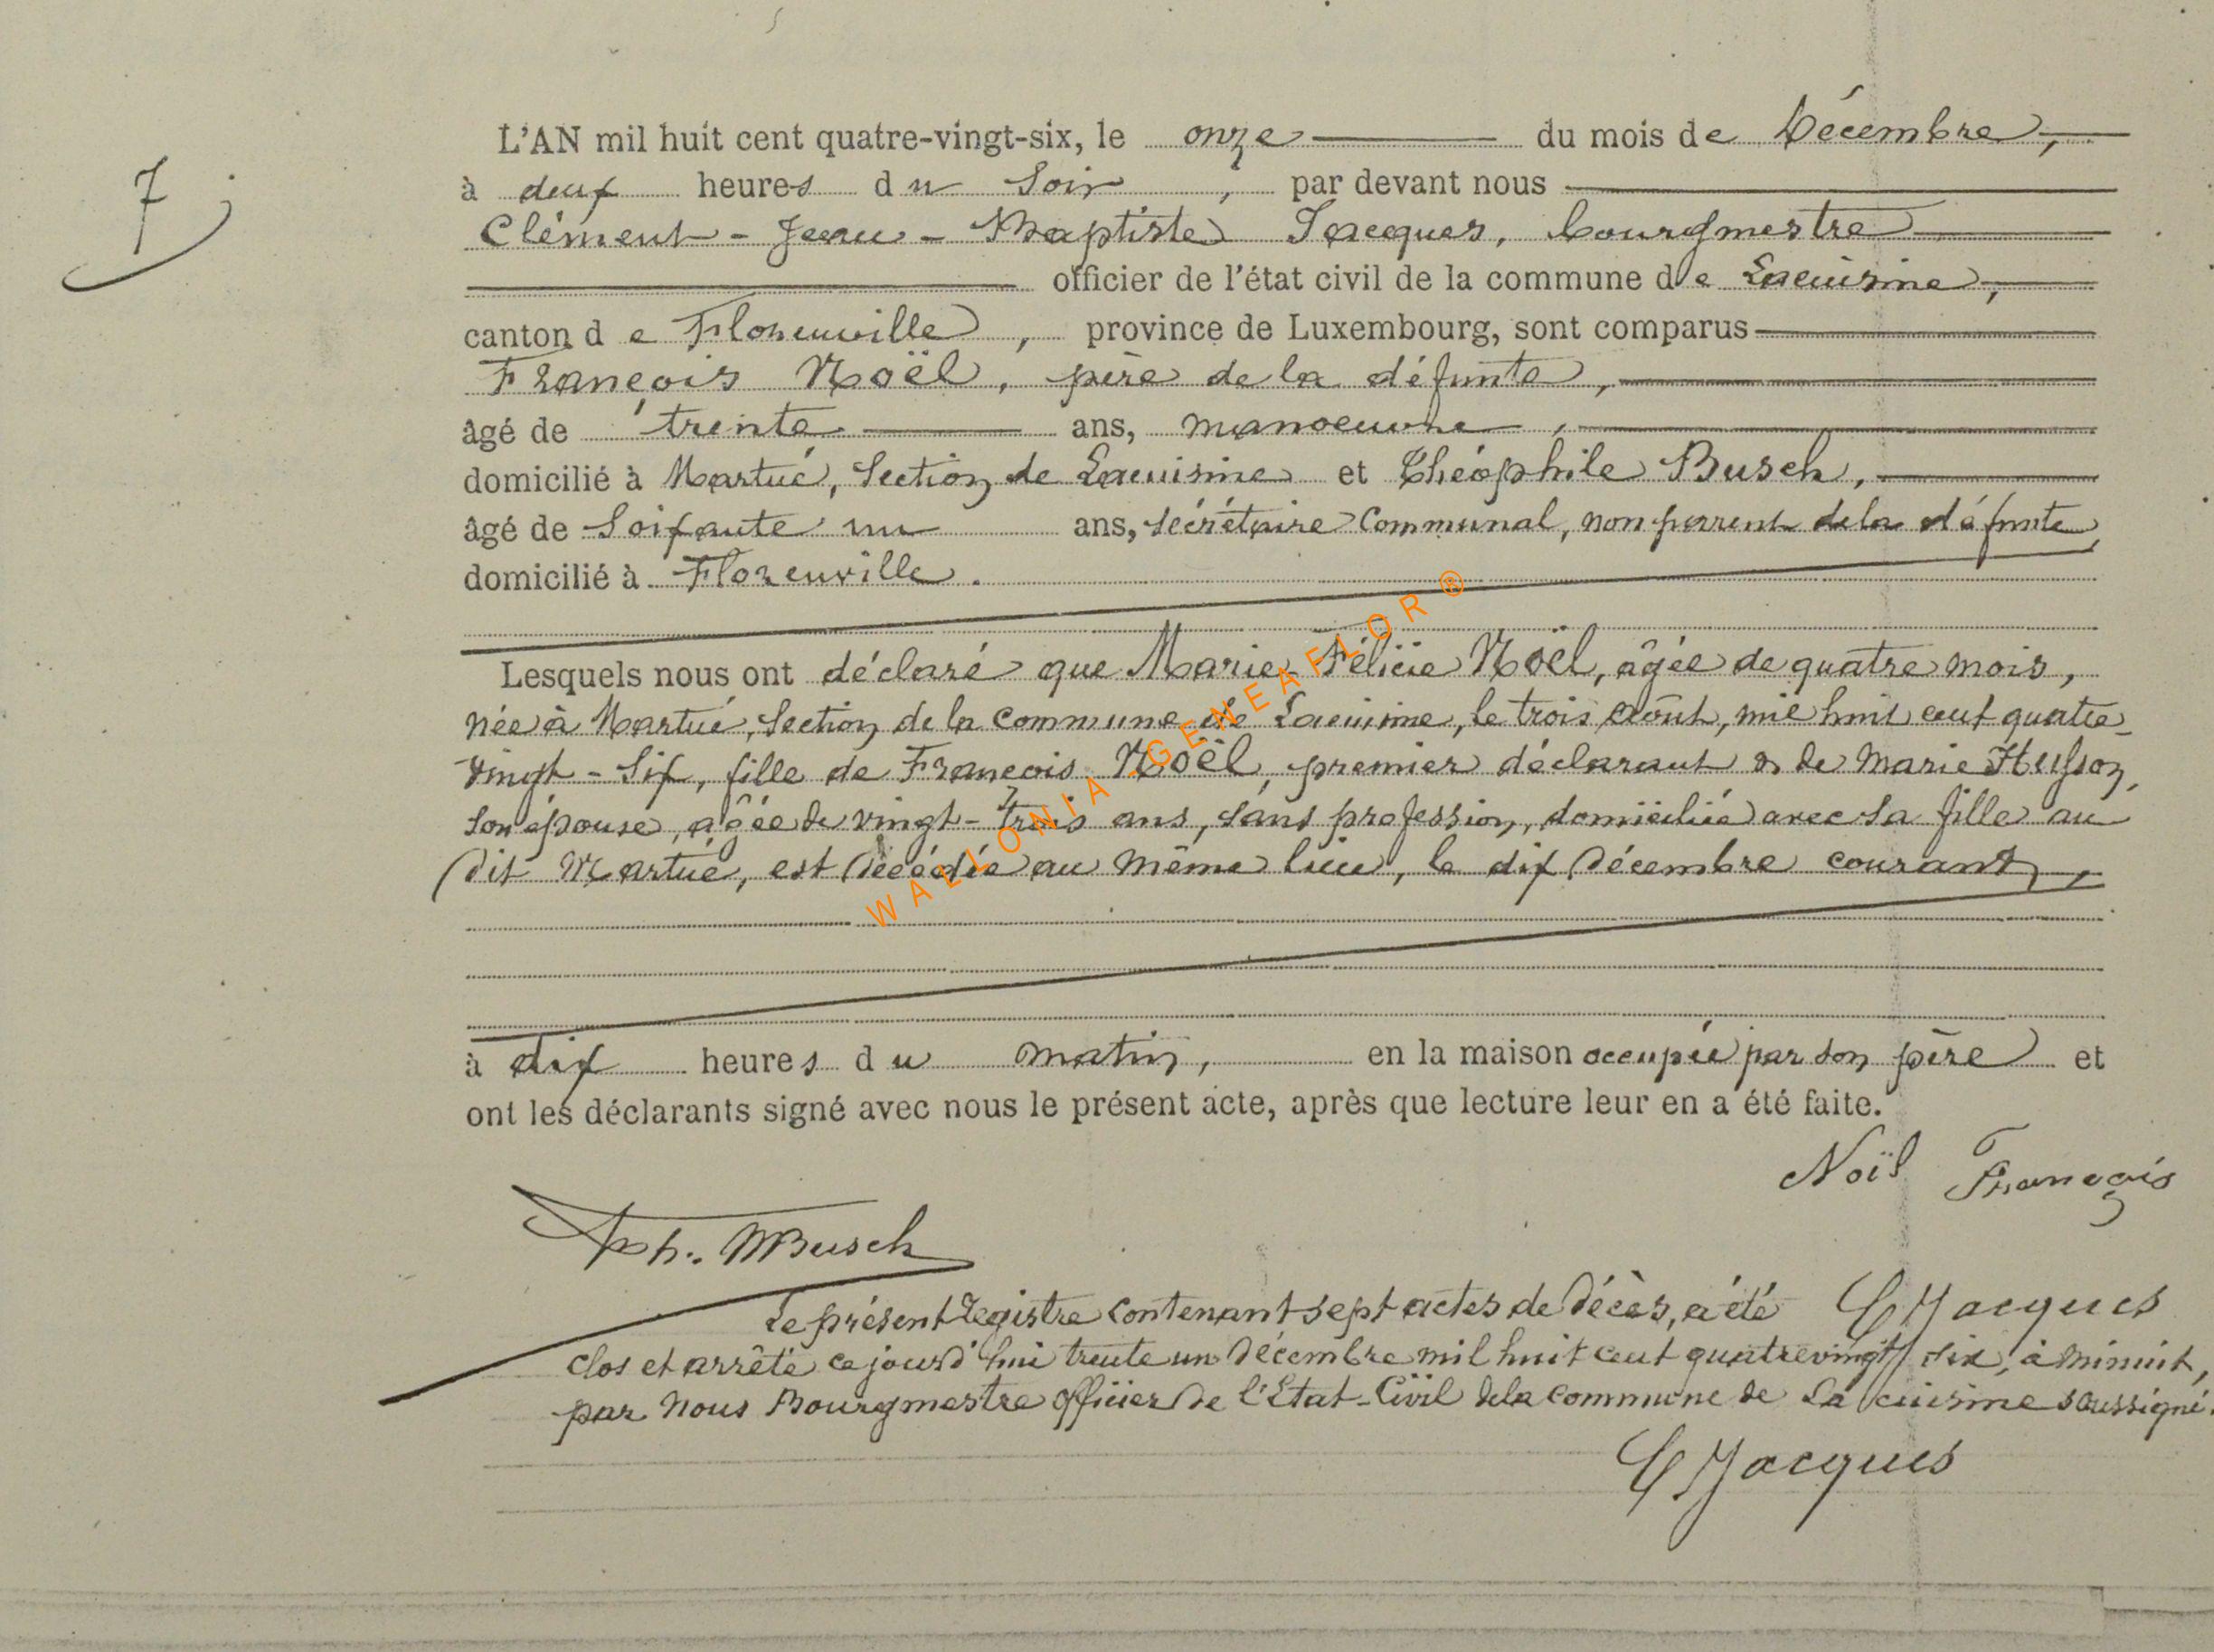 7
L'AN mil huit cent quatre-vingt-six, le onze du mois de Décembre,
à deux heures du Soir, par devant nous
Clément-Jean-Baptiste Jacques, bourgmestre
officier de l'état civil de la commune de Lacuisine,
canton de Florenville, province de Luxembourg, sont comparus
François Noël, père de la défunte,
âgé de trente ans, manoeuvre,
domicilié à Martué, Section de Lacuisine et Théophile Busch,
âgé de Soixante un ans, Sécrétaire Communal, non parent de la défunte,
domicilié à Florenville.
Lesquels nous ont déclaré que Marie-Félicie Noël, âgée de quatre mois,
née à Martué, Section de la Commune de Lacuisine, le trois août, mil huit cent quatre-
vingt-Six, fille de François Noël, premier déclarant & de Marie Husson,
Son épouse, âgée de vingt-trois ans, Sans profession, domiciliée avec Sa fille au
dit Martué, est décédée au même lieu, le dix Décembre courant,
à dix heures du matin, en la maison occupée par son père et
ont les déclarants signé avec nous le présent acte, après que lecture leur en a été faite.
Noël François
Ph. Busch
Le présent Registre Contenant sept actes de Décès, a été
CJacques
clos et arrêté ce jourd'hui trente un Décembre mil huit cent quatrevingt six, à minuit,
par Nous Bourgmestre officier de l'Etat-Civil de la Commune de La cuisine soussigné.
CJacques
WALLONIA GENEAFLOR®